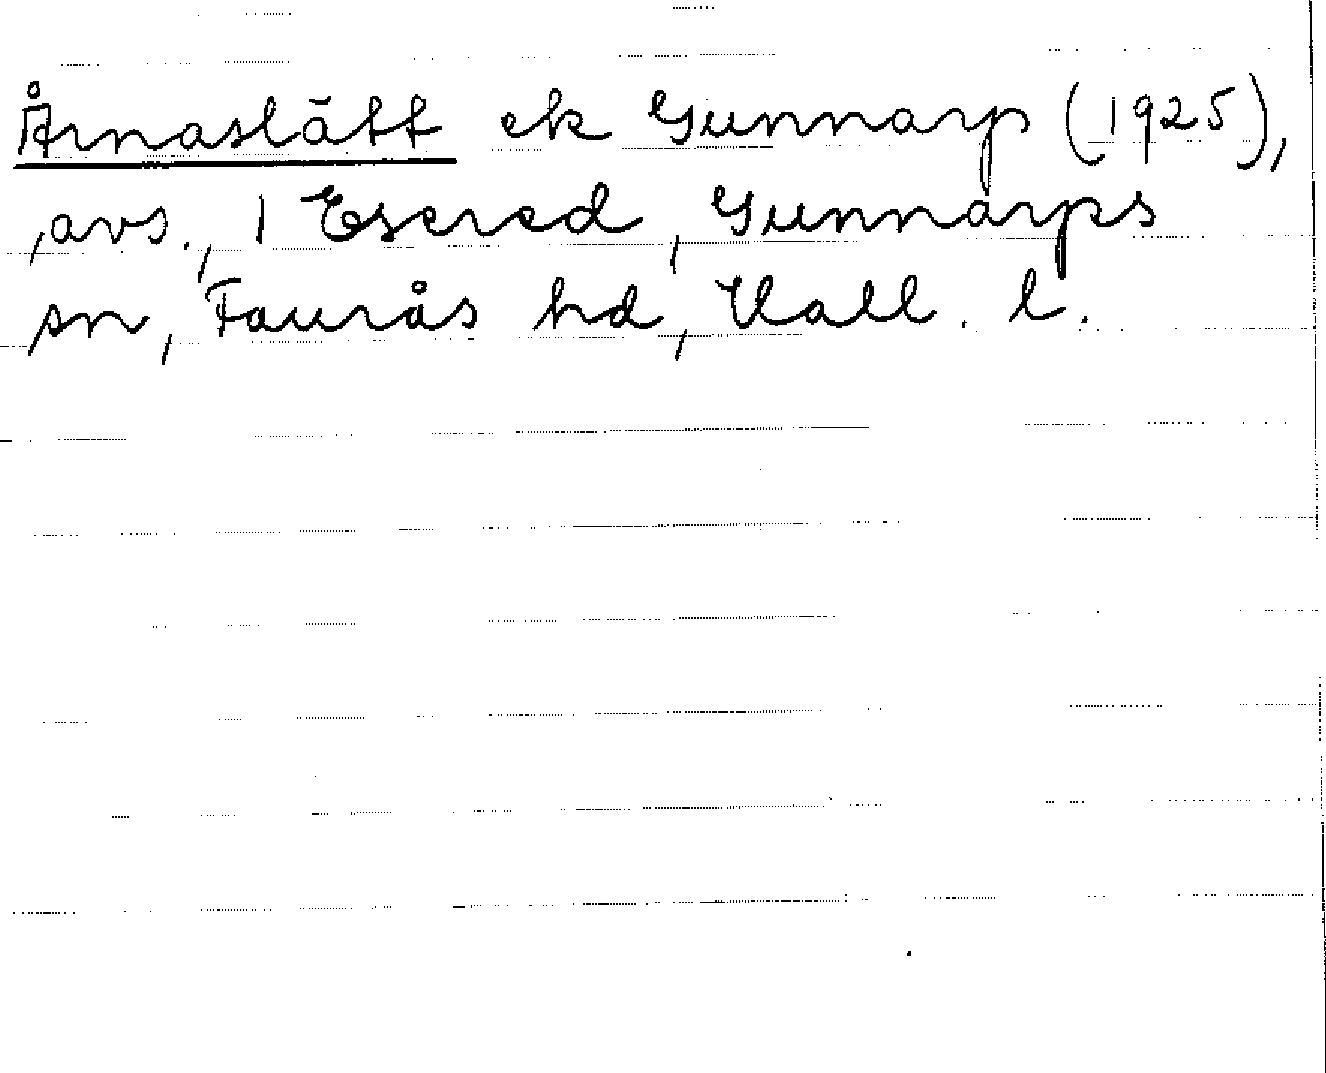 Årnaslätt ek Gunnarp (1925),
, avs., 1 Esered, Gunnarps
sn, Faurås hd, Hall. l.